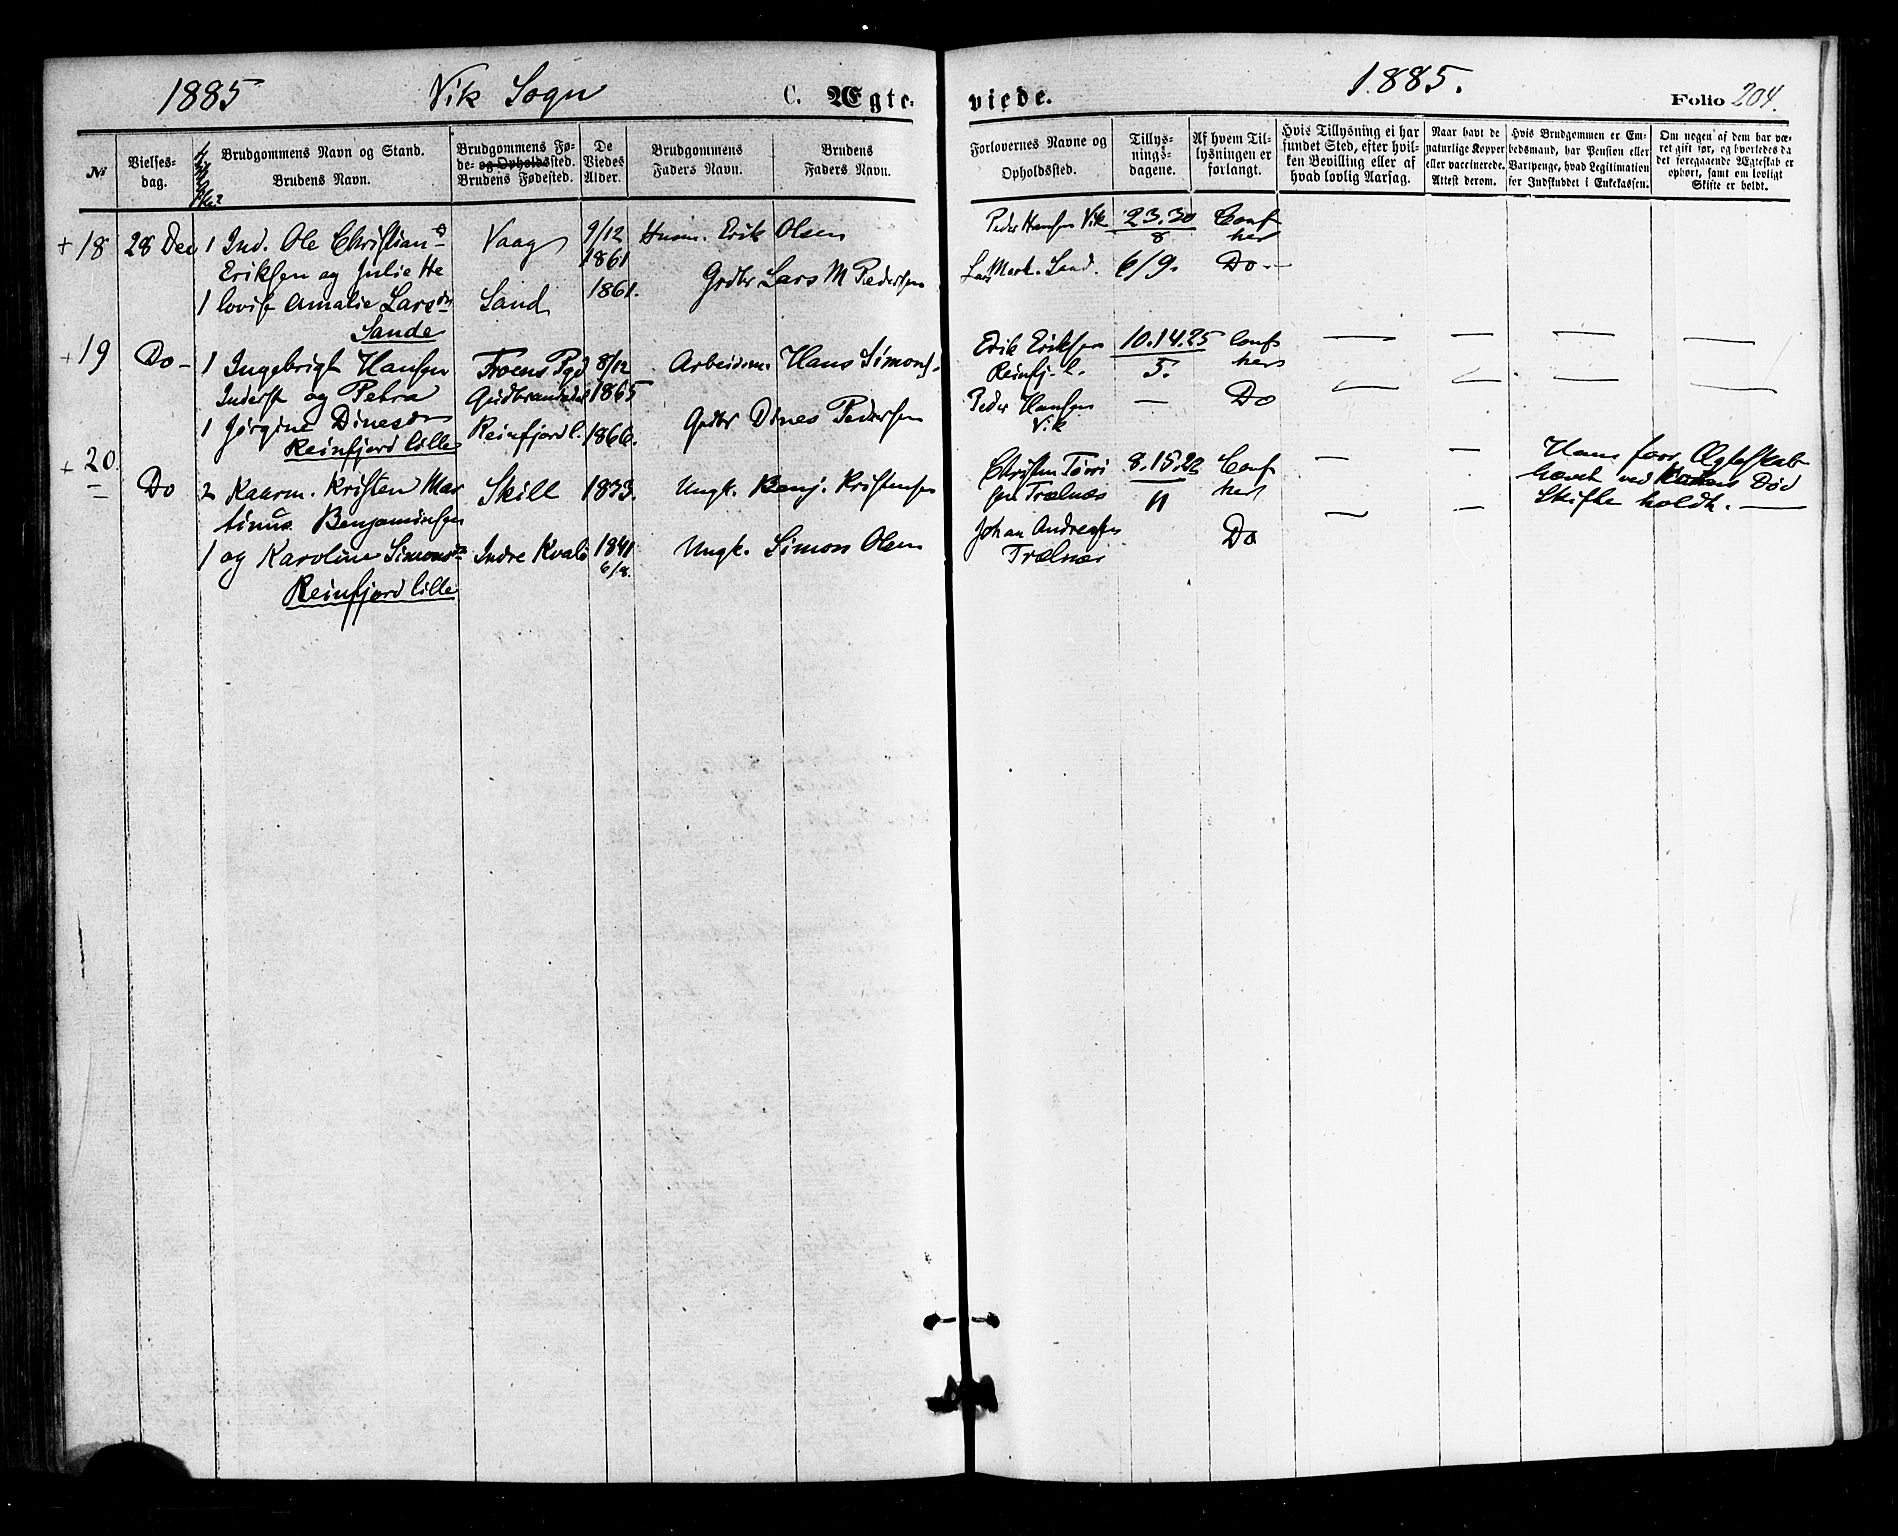 1885 Vik Sogn C. Ægte-
viede. 1885. Folio 204.
№
Vielses-
dag.
Brudgommens Navn og Stand.
Brudens Navn.
Brudgommens Fø-
de- og Opholdssted.
Brudens Fødested.
De
Viedes
Alder.
Brudgommens
Faders Navn.
Brudens
Faders Navn.
Forlovernes Navne og
Opholdssted.
Tillys-
nings-
dagene.
Af hvem Til-
lysningen er
forlangt.
Hvis Tillysning ei har
fundet Sted, efter hvil-
ken Bevilling eller af
hvad lovlig Aarsag.
Naar havt de
naturlige Kopper
eller vaccinerede.
Attest derom.
Hvis Brudgommen er Em-
bedsmand, har Pension eller
Vartpenge, hvad Legitimation
for Indskuddet i Enkekassen.
Om nogen af dem har væ-
ret gift før, og hvorledes da
det foregaaende Ægteskab er
ophört, samt om lovligt
Skifte er holdt.
+ 18 28 Dec 1 Ind. Ole Christian Vaag 9/12 Husm. Erik Olsen
Eriksen og Julie He 1861
1 lovise Amalie Larsdn Sand 1861. Grdbr Lars M Pedersen
Sande
Peder Hansen Vik 23.30 Conf
8 her
Lars Mort. Sand. 6/9. Do.-
+ 19 Do- 1 Ingebrigt Hansen Froens Pgd 8/12 Arbeidsm. Hans Simons.
Inderst og Petra Gudbrandsdal 1865
1 Jørgine Dinesdn Reinfjord l. 1866. Grdbr Dines Pedersen
Reinfjord lille
Erik Eriksen 10.14.25 Conf — — — —
Reinfj. l. 5. her
Peder Hansen — Do — — — —
Vik
+ 20 Do 2 Kaarm. Kristen Mar Skill 1833. Ungk. Benj. Kristensen
tinus Benjaminsen
1 og Karoline Simonsdn Indre Kvalö 1841 Ungk. Simon Olsen
6/8.
Reinfjord lille
Christen Torri 8.15.22 Conf — —
sen Trælnæs 11 her
Johan Andreassen Do — —
Trælnæs
Hans forr. Ægteskab
hævet ved Konens Död
Skifte holdt. —